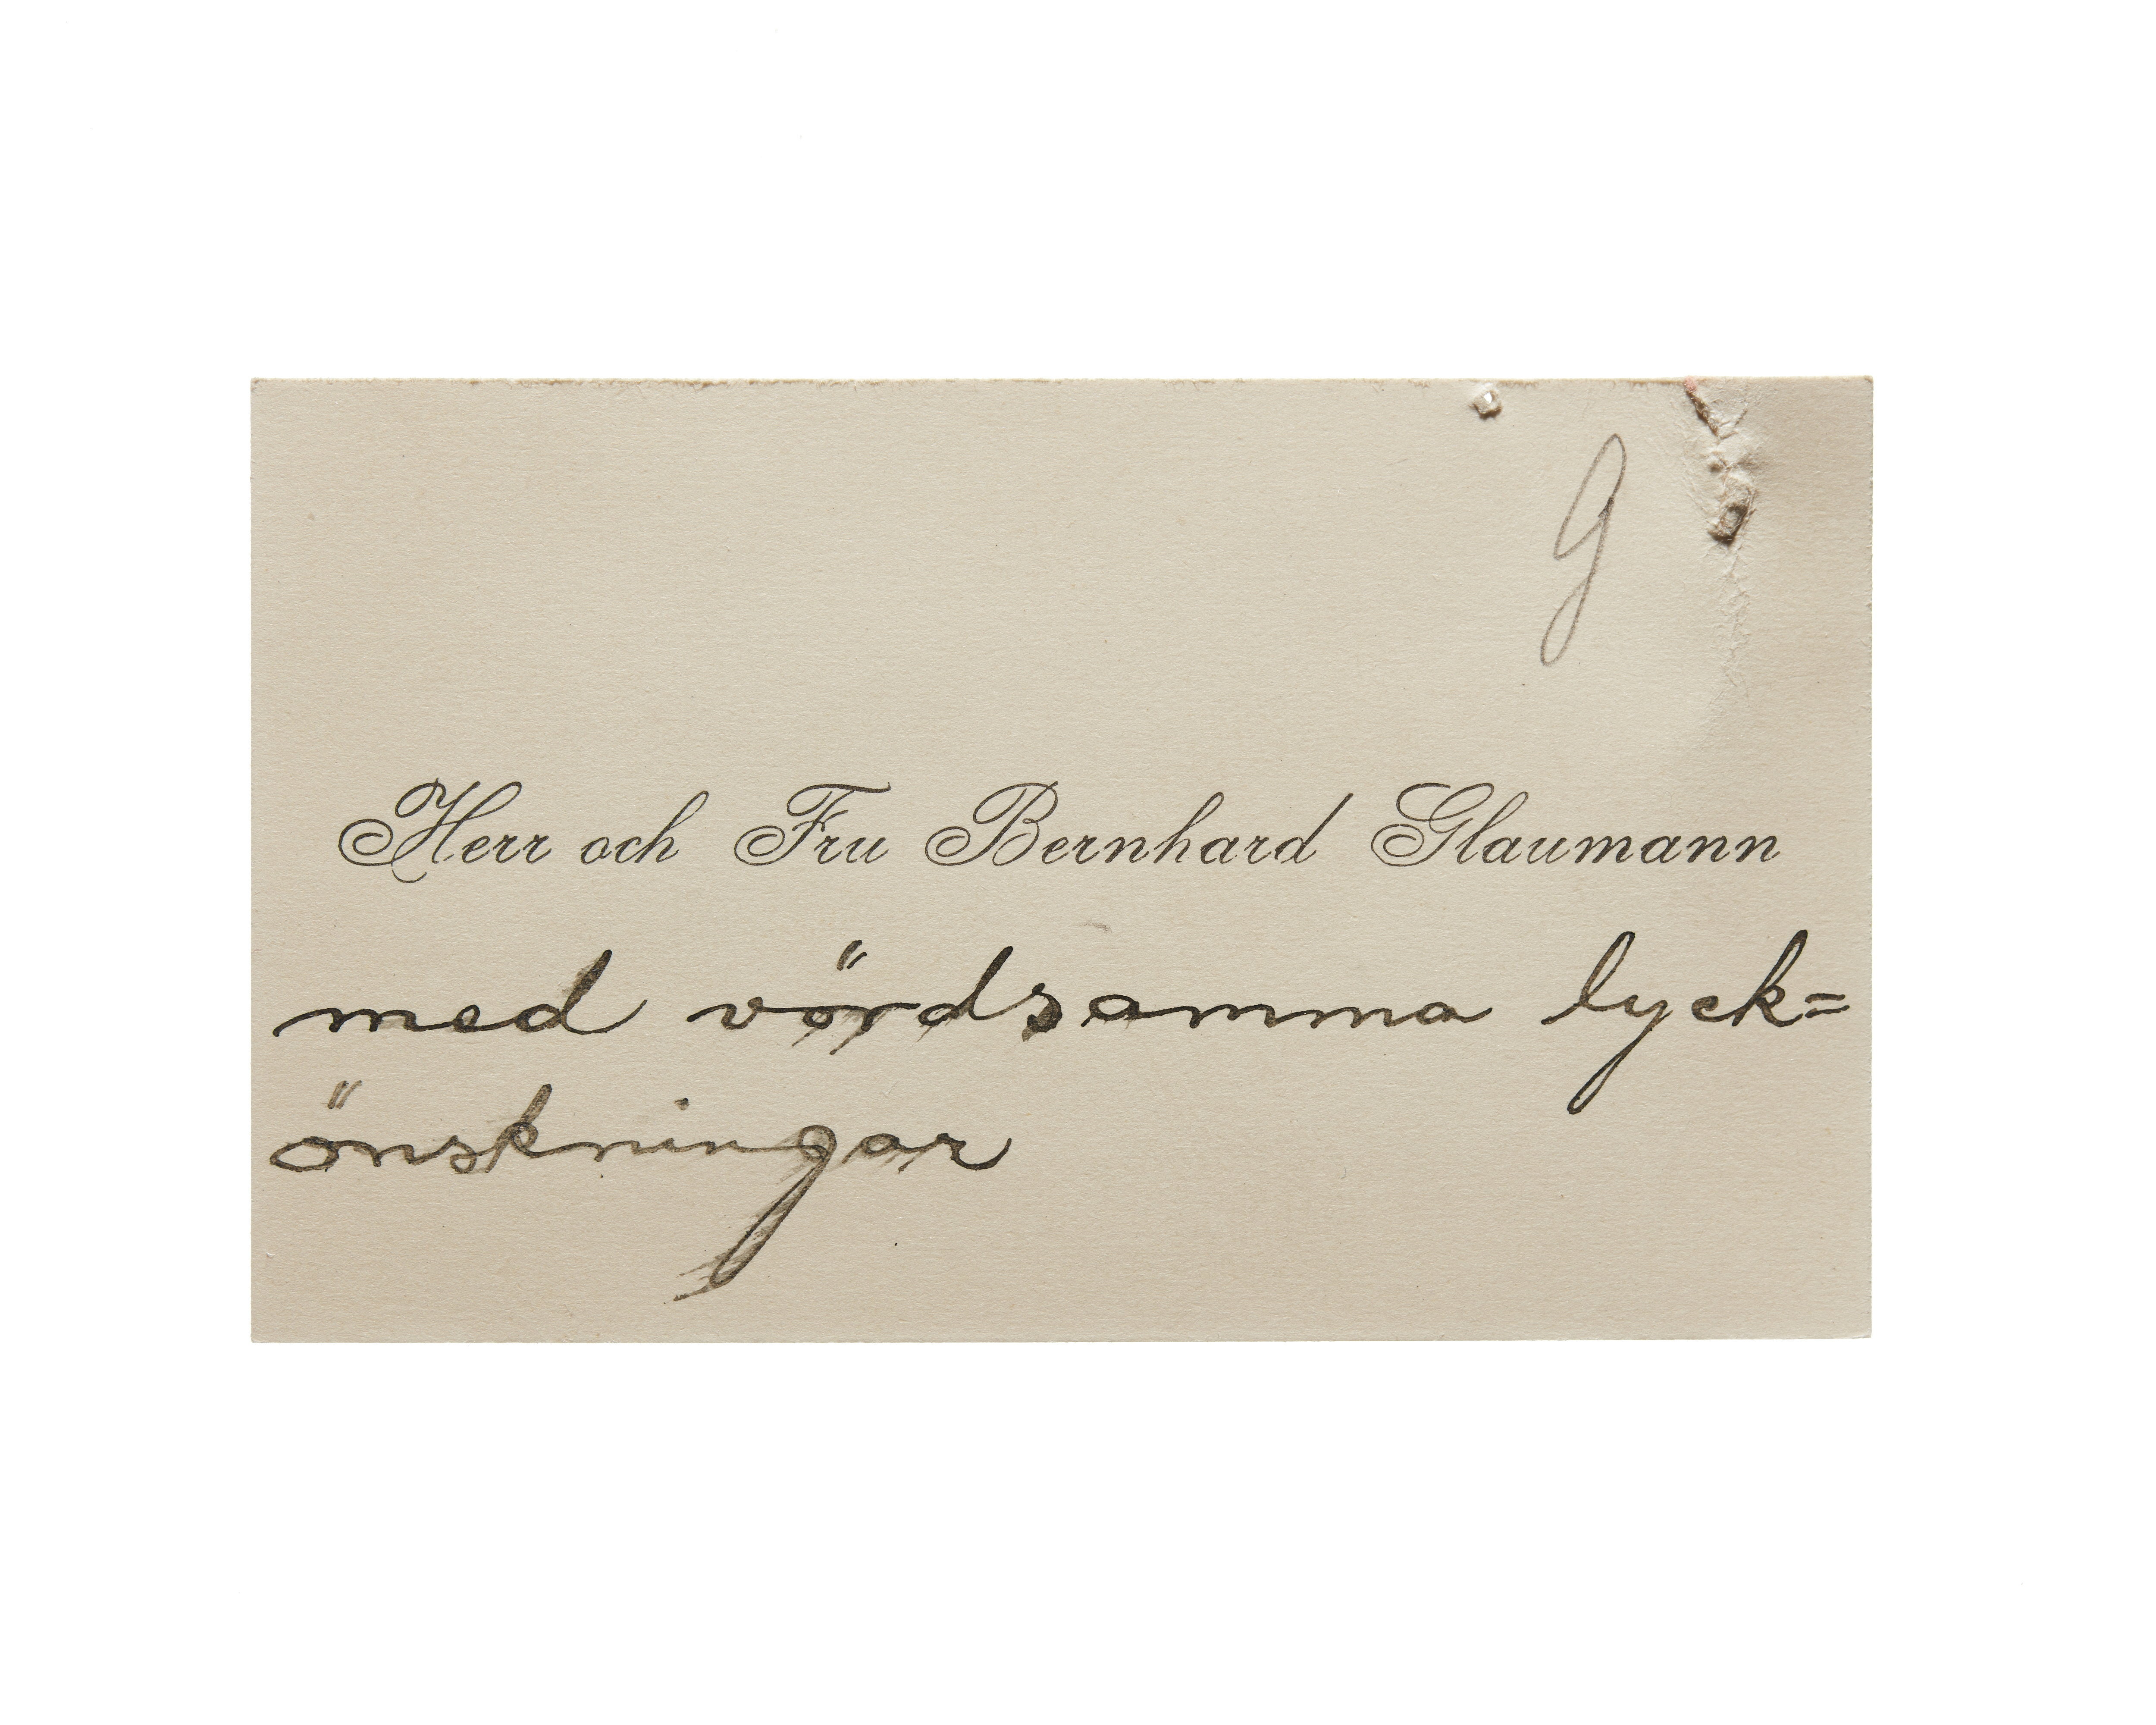 g
Herr och Fru Bernhard Glaumann
med vördsamma lyck=
önskningar